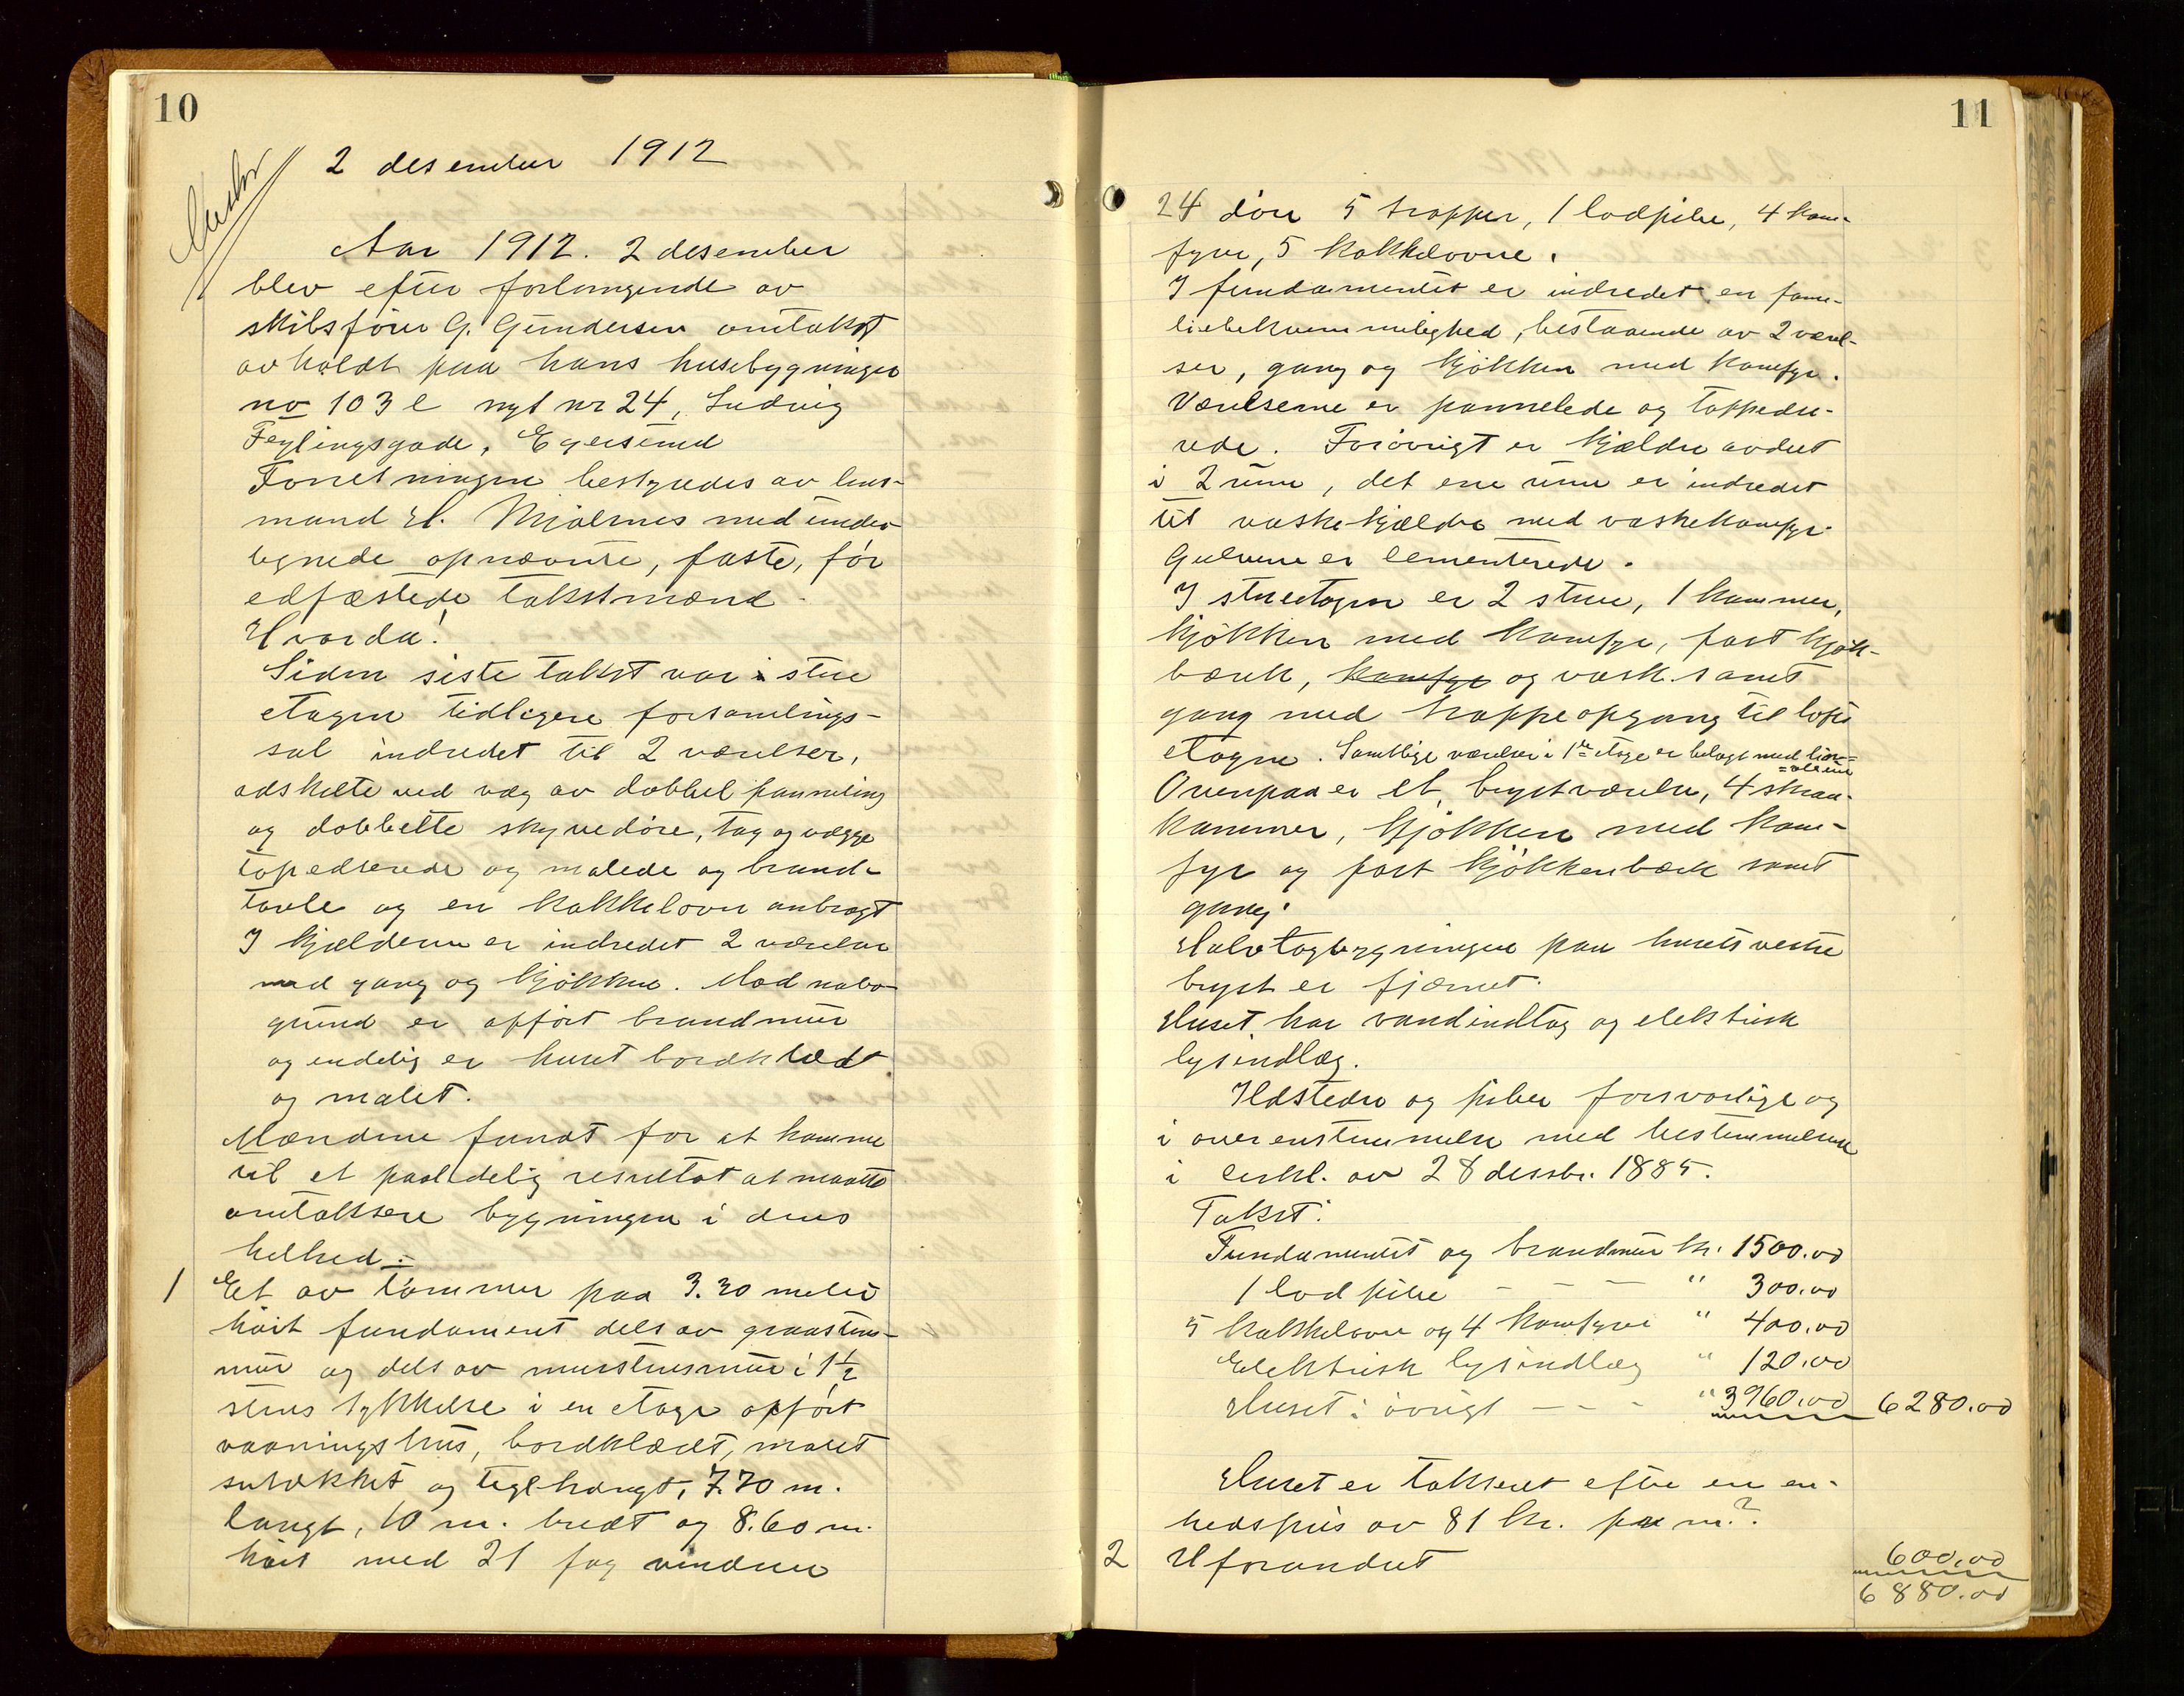 10
2 desember 1912
Aar 1912. 2 desember
blev efter forlangende av
skibsfører G. Gundersen omtakst
avholdt paa hans husebygninger
no 103 e nyt nr 24, Ludvig
Feylingsgade, Egersund
Forretningen bestyredes av lens-
mand H. Mjølnes med under-
tegnede opnævnte, faste, før
edfæstede takstmænd.
Hvorda!
Siden siste takst var i stue
etagen tidligere forsamlings-
sal indredet til 2 værelser,
adskilte ved væg av dobbel panneling
og dobbelte skyvedøre, tag og vægge
tapedserede og malede og brand-
tavle og en kakkelovn anbragt
I kjælderen er indredet 2 værelser
med gang og kjøkken. Mod nabo-
grund er opført brandmur
og endelig er huset bordklædt
og malet.
Mændene fandt for at komme
til et paalidelig resultat at maatte
omtaksere bygningen i dens
helhed:
1 Et av tømmer paa 3.30 meter
høit fundament dels av graastens-
mur og dels av murstensmur i 1½
stens tykkelse i en etage opført
vaaningshus, bordklædt, malet
sutækket og teglhængt, 7.70 m.
langt, 10 m. bredt og 8.60 m.
høit med 21 fag vinduer
11
24 døre 5 trapper, 1 lodpibe, 4 kom-
fyre, 5 kakkelovne.
I fundamentet er indredet en fami-
liebekvemmelighed, bestaaende av 2 værel-
ser, gang og kjøkken med komfyr.
Værelserne er pannelede og tapedse-
rede. Forøvrigt er kjælder avdelt
i 2 rum, det ene rum er indredet
til vaskekjælder med vaskekomfyr.
Gulvene er cementerede.
I stueetagen er 2 stuer, 1 kammer,
kjøkken med komfyr, fast kjøk-
bænk, komfyr og vask samt
gang med trappeopgang til lofts
etagen. Samtlige værelser i 1ste etage er belagt med lino-
=oleum
Ovenpaa er et brystværelse, 4 skraa-
kammer, kjøkken med kom-
fyr og fast kjøkkenbænk samt
gang.
Halvtagbygningen paa husets vestre
bryst er fjærnet.
Huset har vandindlag og elektrisk
lysindlæg.
Ildsteder og piber forsvarlige og
i overenstemmelse med bestemmelserne
i cirkl. av 28 dessbr. 1885.
Takst:
Fundamentet og brandmur kr. 1500.00
1 lodpibe - - - " 300.00
5 kakkelovne og 4 komfyrer " 400.00
Elektrisk lysindlæg " 120.00
Huset i øvrigt - - - " 3960.00 6280.00
Huset er takseret efter en en-
hedspris av 81 kr. pr m².
2 Uforandret 600.00
6880.00